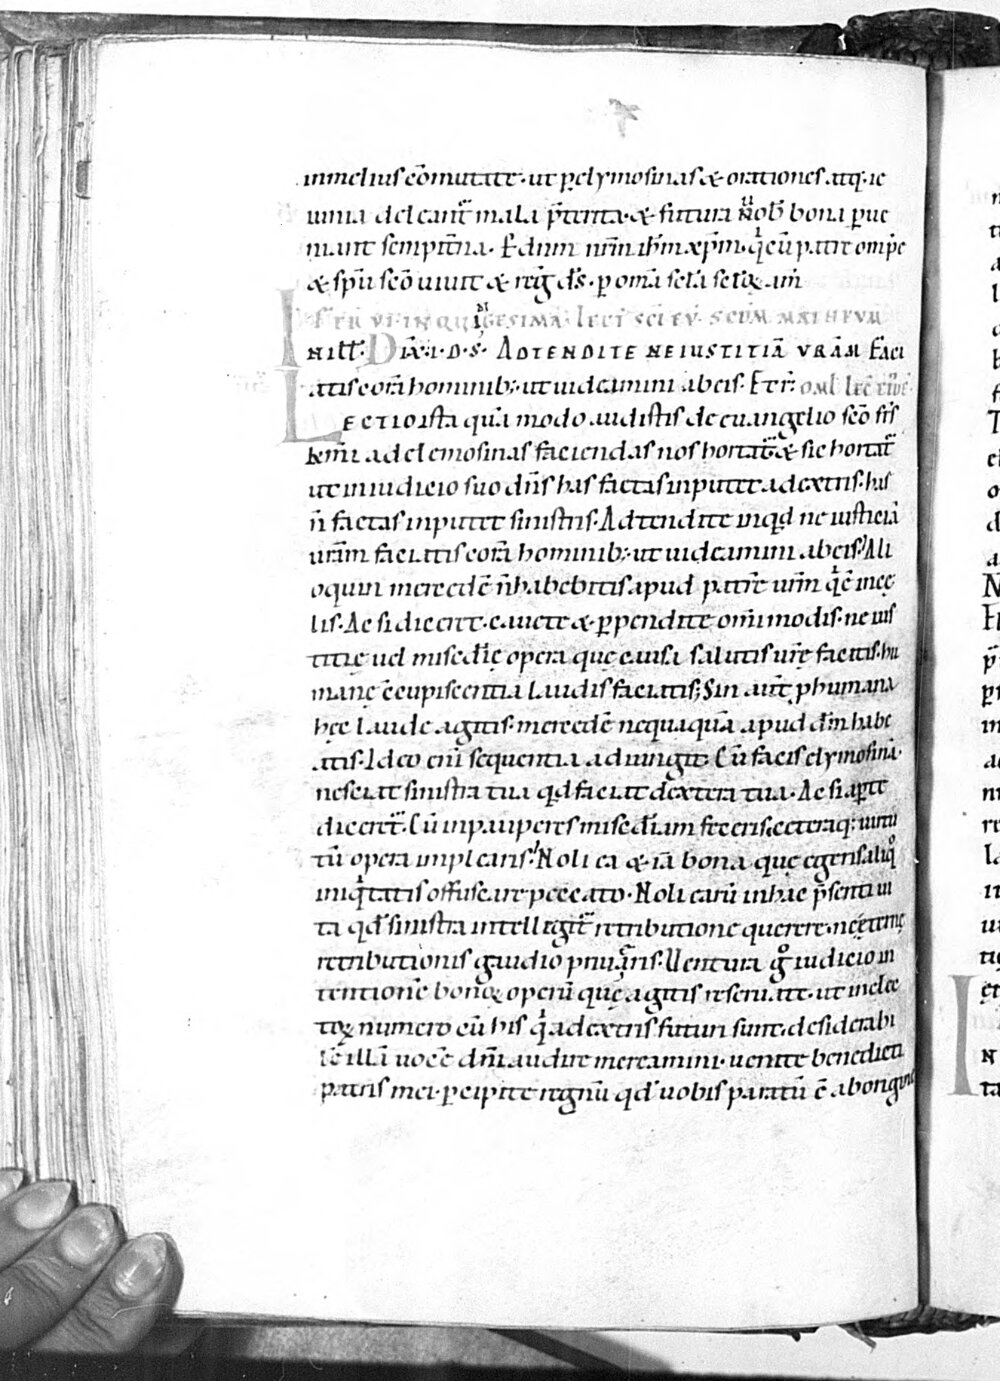 inmelius cōmutate· ut p̱ elymosinas & orationes atq; ie
iunia deleant̃ mala p̄tenta· & futura nob̄ bona p̱ue
niant sempit̄na· P̱ dnm̄ nrm̄ ihm̄ xp̄m· q̇ cū patre om̄p̄e
& sp̄u sc̄o uiuit & reḡ ds̄· p̱ om̄a sc̄la sc̄loꝝ am̄
FER VI IN QUINQUAGESIMA· LECT SCI EV· SCDM MATHEUM
IN ILL̄· DIX̄·I·D·S· ADTENDITE NE IUSTITIĀ VRĀM faci
atis corā hominib; ut uideamini ab eis· Et r̄· OML̄ LECT EIUSDĒ
Lectio ista quā modo audistis de euangelio sc̄o fr̄s
km̄i ad elemosinas faciendas nos hortat̃ & sic hortat̃
ut in iudicio suo dn̄s has factas inputet ad dextris· has
n̄ factas inputet sinistris· Adtendite inq̇d ne iusticiā
urām faciatis corā hominib; ut uideamini ab eis· Ali
oquin mercedē n̄ habebitis apud patrē urm̄ q̇ ē in cę
lis· Ac si diceret· cauete & p̱pendite om̄imodis· ne ius
titię uel mis̄cdię opera quę causa salutis urę̄ facitis· hu
manę c̄cupiscentia laudis faciatis; Sin aut̄ p humana
hęc laude agitis· mercedē nequaquā apud dm̄ habe
atis· Ideo eni sequentia adiungit· Cū facis elymosinā·
nesciat sinistra tua qd̄ faciat dextera tua· Ac si ap̱te
diceret̃· Cū in pauperes mis̄cdiam feceris cęteraq; uirtu
tū opera impleueris· Noli ea & iā bona quę egeris aliq̊
iniq̇tatis offuscare peccato· Noli earū in hac p̄senti ui
ta qd̄ sinistra intellegit̃ retributione querere· ne ęternę
retributionis gaudio priuaris· Uentura g̊ iudicio in
tentionē bonoꝝ operū quę agitis reseruate· ut in elec
toꝝ numero cū his q̇ ad dextris futuri sunt· desiderabi
lē illā uocē dn̄i audire mereamini· uenite benedicti
patris mei· p̱cipite regnū qd̄ uobis paratū ē ab origine